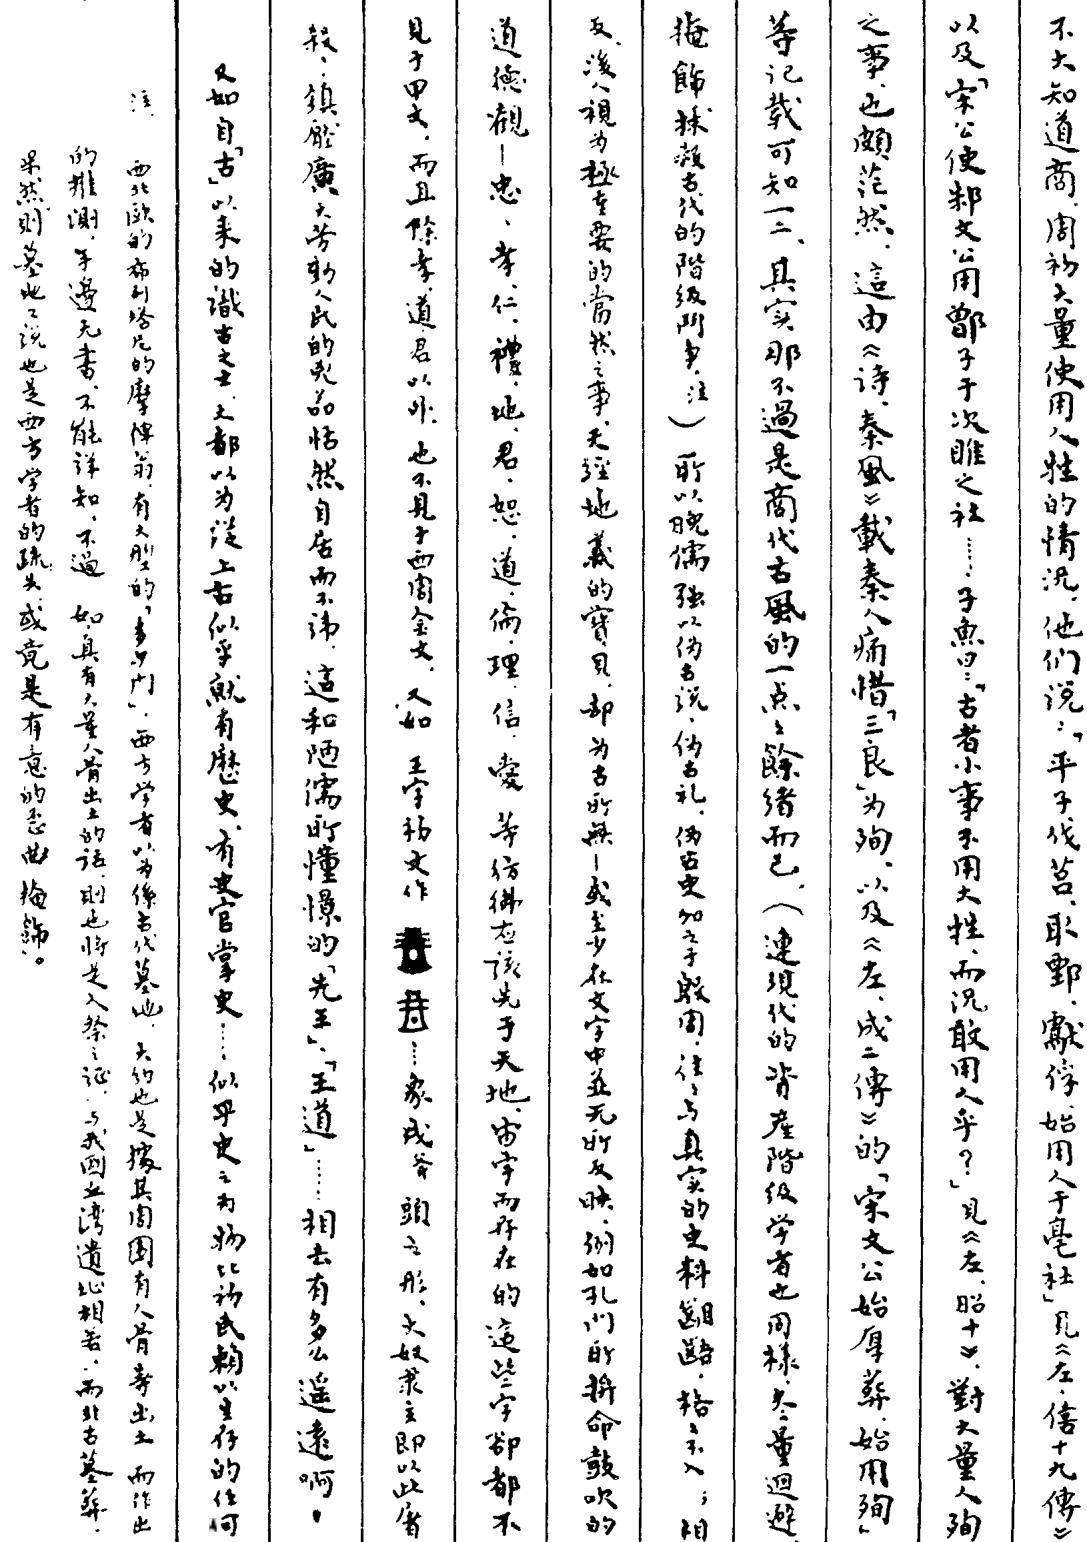 不大知道商、周初大量使用人牲的情况，他们说：「平子伐莒，取郠，獻俘，始用人于亳社」見《左、僖十九傳》
以及「宋公使邾文公用鄫子于次睢之社……子魚曰：「古者小事不用大牲，而况敢用人乎？」見《左、昭十》，對大量人殉
之事，也頗茫然，這由《詩、秦風》載秦人痛惜「三良」为殉，以及《左、成二傳》的「宋文公始厚葬，始用殉」
等记载可知一二、其实那不過是商代古風的一点之餘绪而已，（連現代的资產階级学者也同樣，尽量迴避、
掩飾抹煞古代的階级鬥争，注）所以晚儒强以伪古说，伪古礼，伪古史加之于殷周，往々与真实的史料齟齬，格々不入；相
反，後人視为極重要的當然之事，天经地義的寶貝，却为古所無—或至少在文字中並无所反映，例如孔门所拚命鼓吹的
道德觀—忠、孝、仁、禮、地、君、恕、道、倫、理、信、愛等彷彿应该先于天地、宙宇而存在的這些字卻都不
見于甲文，而且除孝、道、君以外，也不見于西周金文，又如王字初文作……象戌斧頭之形，大奴隶主即以此屠
殺、鎮壓廣大劳動人民的兇器恬然自居而不讳，這和陋儒所憧憬的「先王」、「王道」……相去有多么遥遠啊！
又如自「古」以来的識古之士，大都以为從上古似乎就有歷史，有史官掌史……似乎史之为物比初民賴以生存的任何
注、西北欧的布列塔尼的摩俾翁，有大型的「」，西方学者以为係古代墓地，大约也是據其周围有人骨等出土而作出
的推測，手邊无書，不能详知，不過如具有大量人骨出土的话，則也將是人祭之证，与我國丘湾遺址相若，而非古墓葬，
果然，則墓地之说也是西方学者的疏失，或竟是有意的歪曲掩飾。